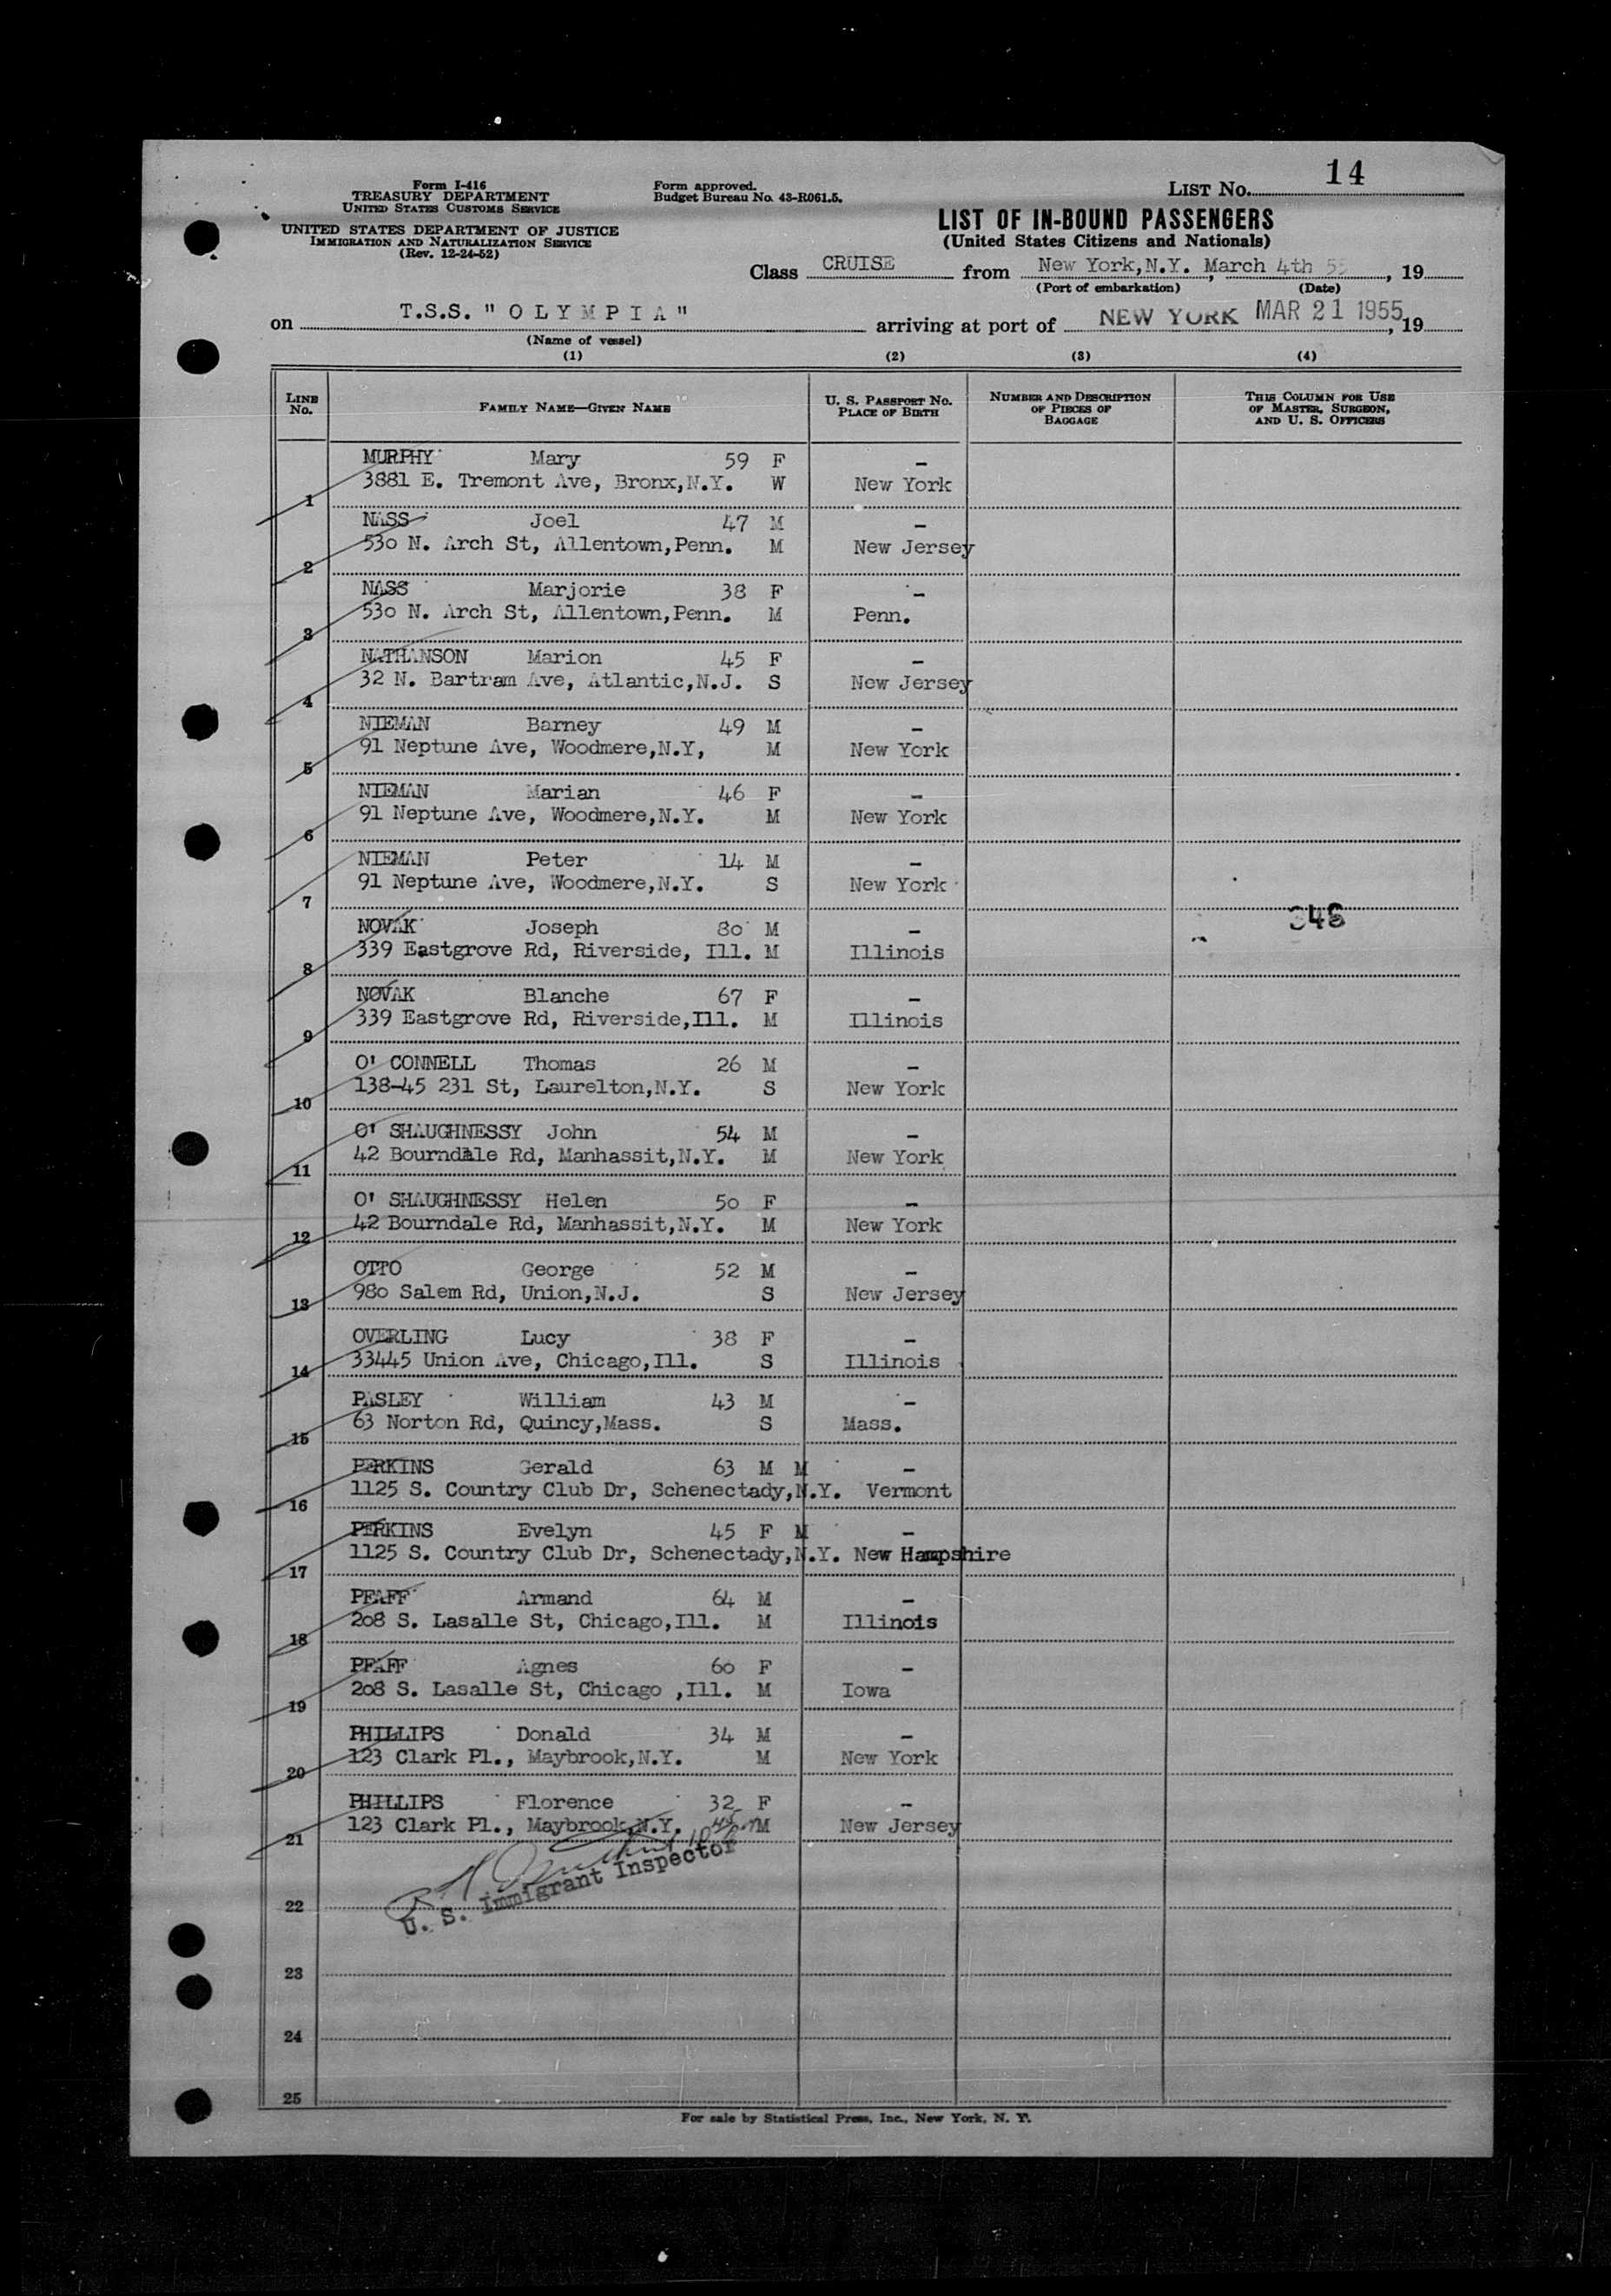 Form I-416
TREASURY DEPARTMENT
UNITED STATES CUSTOMS SERVICE
UNITED STATES DEPARTMENT OF JUSTICE
IMMIGRATION AND NATURALIZATION SERVICE
(Rev. 12-24-52)
Form approved.
Budget Bureau No. 43-R061.5.
LIST No. 14
LIST OF IN-BOUND PASSENGERS
(United States Citizens and Nationals)
Class CRUISE from New York,N.Y. , March 4th 55 , 19
(Port of embarkation) (Date)
on T.S.S. " O L Y M P I A " arriving at port of NEW YORK MAR 21 1955, 19
(Name of vessel)
(1) (2) (3) (4)
LINE No. FAMILY NAME—GIVEN NAME U. S. PASSPORT NO. PLACE OF BIRTH NUMBER AND DESCRIPTION OF PIECES OF BAGGAGE THIS COLUMN FOR USE OF MASTER, SURGEON, AND U. S. OFFICERS
MURPHY Mary 59 F -
1 3881 E. Tremont Ave, Bronx,N.Y. W New York
NASS Joel 47 M -
2 530 N. Arch St, Allentown,Penn. M New Jersey
NASS Marjorie 38 F -
3 530 N. Arch St, Allentown,Penn. M Penn.
NATHANSON Marion 45 F -
4 32 N. Bartram Ave, Atlantic,N.J. S New Jersey
NIEMAN Barney 49 M -
5 91 Neptune Ave, Woodmere,N.Y, M New York
NIEMAN Marian 46 F -
6 91 Neptune Ave, Woodmere,N.Y. M New York
NIEMAN Peter 14 M -
7 91 Neptune Ave, Woodmere,N.Y. S New York
NOVAK Joseph 80 M -
8 339 Eastgrove Rd, Riverside, Ill. M Illinois
NOVAK Blanche 67 F -
9 339 Eastgrove Rd, Riverside,Ill. M Illinois
O' CONNELL Thomas 26 M -
10 138-45 231 St, Laurelton,N.Y. S New York
O' SHAUGHNESSY John 54 M -
11 42 Bourndale Rd, Manhassit,N.Y. M New York
O' SHAUGHNESSY Helen 50 F -
12 42 Bourndale Rd, Manhassit,N.Y. M New York
OTTO George 52 M -
13 980 Salem Rd, Union,N.J. S New Jersey
OVERLING Lucy 38 F -
14 33445 Union Ave, Chicago,Ill. S Illinois
PASLEY William 43 M -
15 63 Norton Rd, Quincy,Mass. S Mass.
PERKINS Gerald 63 M M -
16 1125 S. Country Club Dr, Schenectady,N.Y. Vermont
PERKINS Evelyn 45 F M -
17 1125 S. Country Club Dr, Schenectady,N.Y. New Hampshire
PFAFF Armand 64 M -
18 208 S. Lasalle St, Chicago,Ill. M Illinois
PFAFF Agnes 60 F -
19 208 S. Lasalle St, Chicago ,Ill. M Iowa
PHILLIPS Donald 34 M -
20 123 Clark Pl., Maybrook,N.Y. M New York
PHILLIPS Florence 32 F -
21 123 Clark Pl., Maybrook,N.Y. M New Jersey
U. S. Immigrant Inspector
22
23
24
25
For sale by Statistical Press, Inc., New York, N. Y.